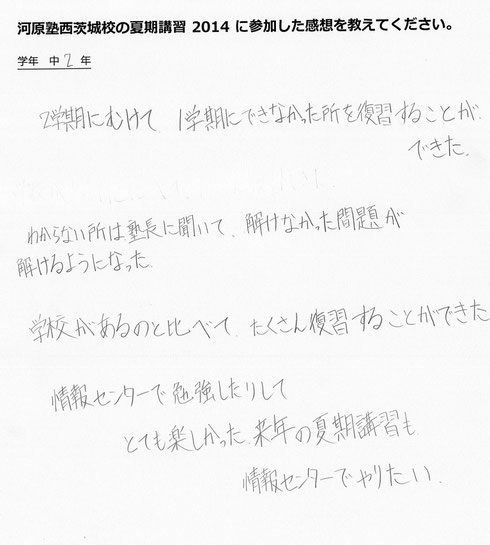 河原塾西茨城校の夏期講習 2014 に参加した感想を教えてください。
学年 中2年
2学期にむけて、1学期にできなかった所を復習することが
できた。
わからない所は塾長に聞いて、解けなかった問題が
解けるようになった。
学校があるのと比べて、たくさん復習することができた
情報センターで勉強したりして
とても楽しかった。来年の夏期講習も、
情報センターでやりたい。